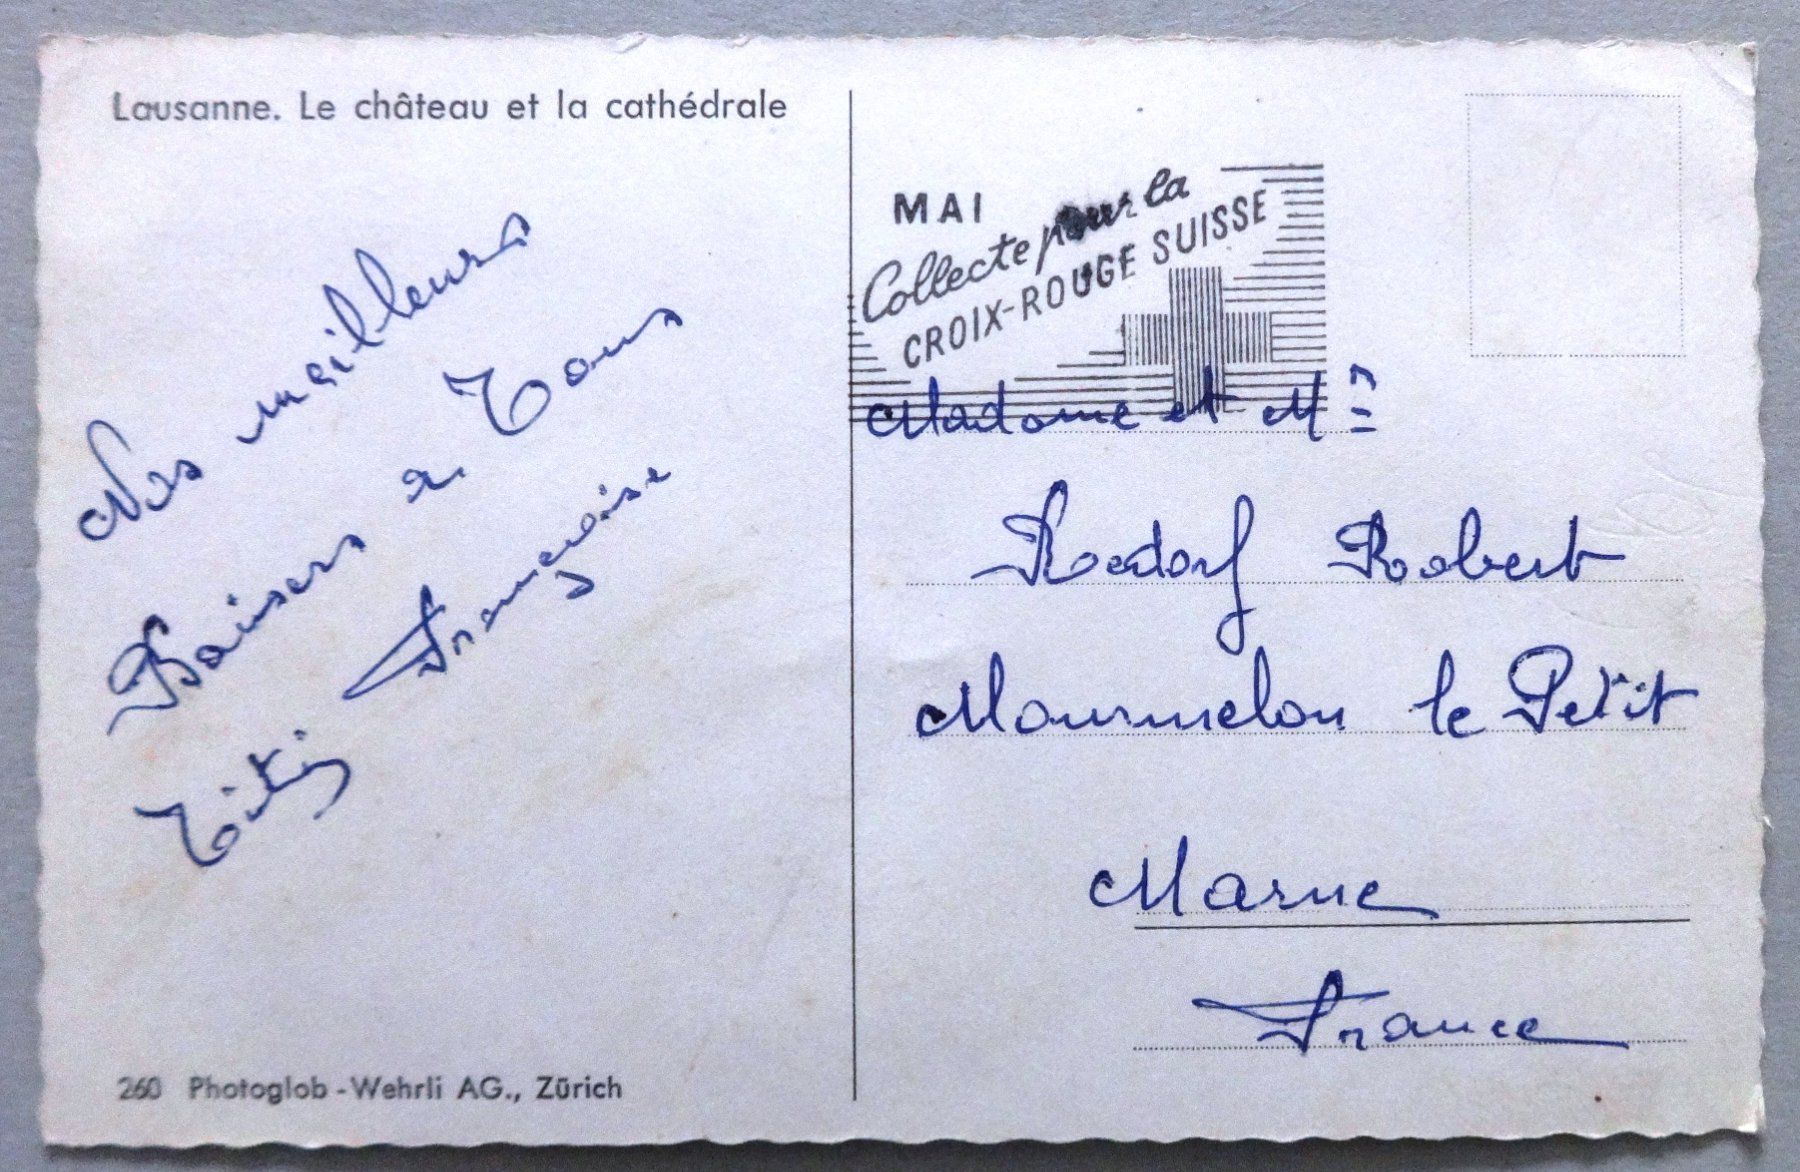 Lausanne. Le château et la cathédrale
Nos meilleurs
Baisers a Tous
Titi Françoise
260 Photoglob-Wehrli AG., Zürich
MAI
Collecte pour la
CROIX-ROUGE SUISSE
Madame et Mr
Robert
Mourmelon le Petit
Marne
France